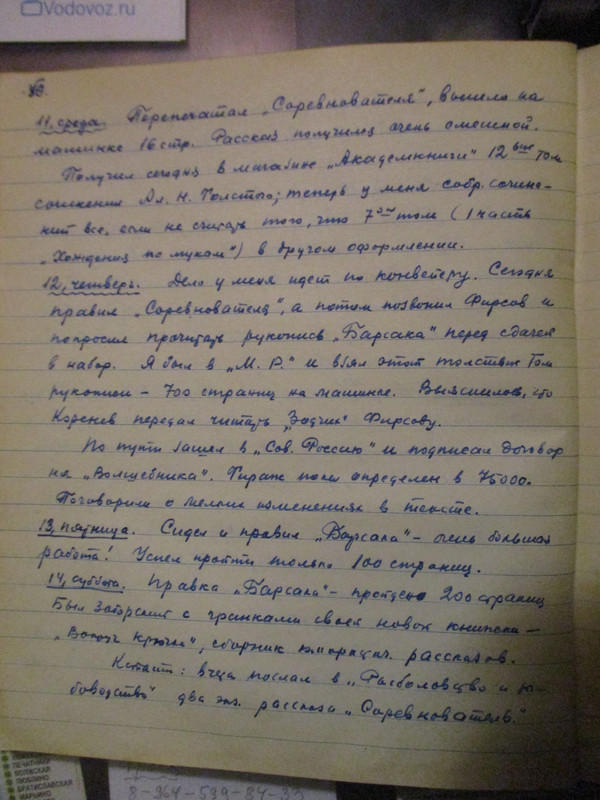 Vodovoz.ru
11, среда. Перепечатал „Соревнователя“, вышло на
машинке 16 стр. Рассказ получился очень смешной.
Получил сегодня в магазине „Академкниги“ 12 том
сочинения Ал. Н. Толстого; теперь у меня собр. сочине-
ний все, если не считать того, что 7 том (1 часть
„Хождения по мукам“) в другом оформлении.
12, четверг. Дело у меня идет по конвейеру. Сегодня
правил „Соревнователя“, а потом позвонил Фирсов и
попросил прочитать рукопись „Барсака“ перед сдачей
в набор. Я был в „М. Р.“ и взял этот толстый том
рукописи – 700 страниц на машинке. Выяснилось, что
Коренев передал читать „Зодчих“ Фирсову.
По пути зашел в „Сов. Россию“ и подписал договор
на „Волшебника“. Тираж пока определен в 75000.
Поговорили о мелких изменениях в тексте.
13, пятница. Сидел и правил „Барсака“ – очень большая
работа! Успел пройти только 100 страниц.
14, суббота. Правка „Барсака“ – 200 страниц
Был с гранками своей новой книжки –
„Вокруг крючка“, сборник юмористич. рассказов.
Кстати: вчера послал в „Рыболовство и ры-
боводство“ два экз. рассказа „Соревнователь.“
ПЕЧАТНИКИ
ВОЛЖСКАЯ
ЛЮБЛИНО
БРАТИСЛАВСКАЯ
МАРЬИНО
8-964-539-84-33